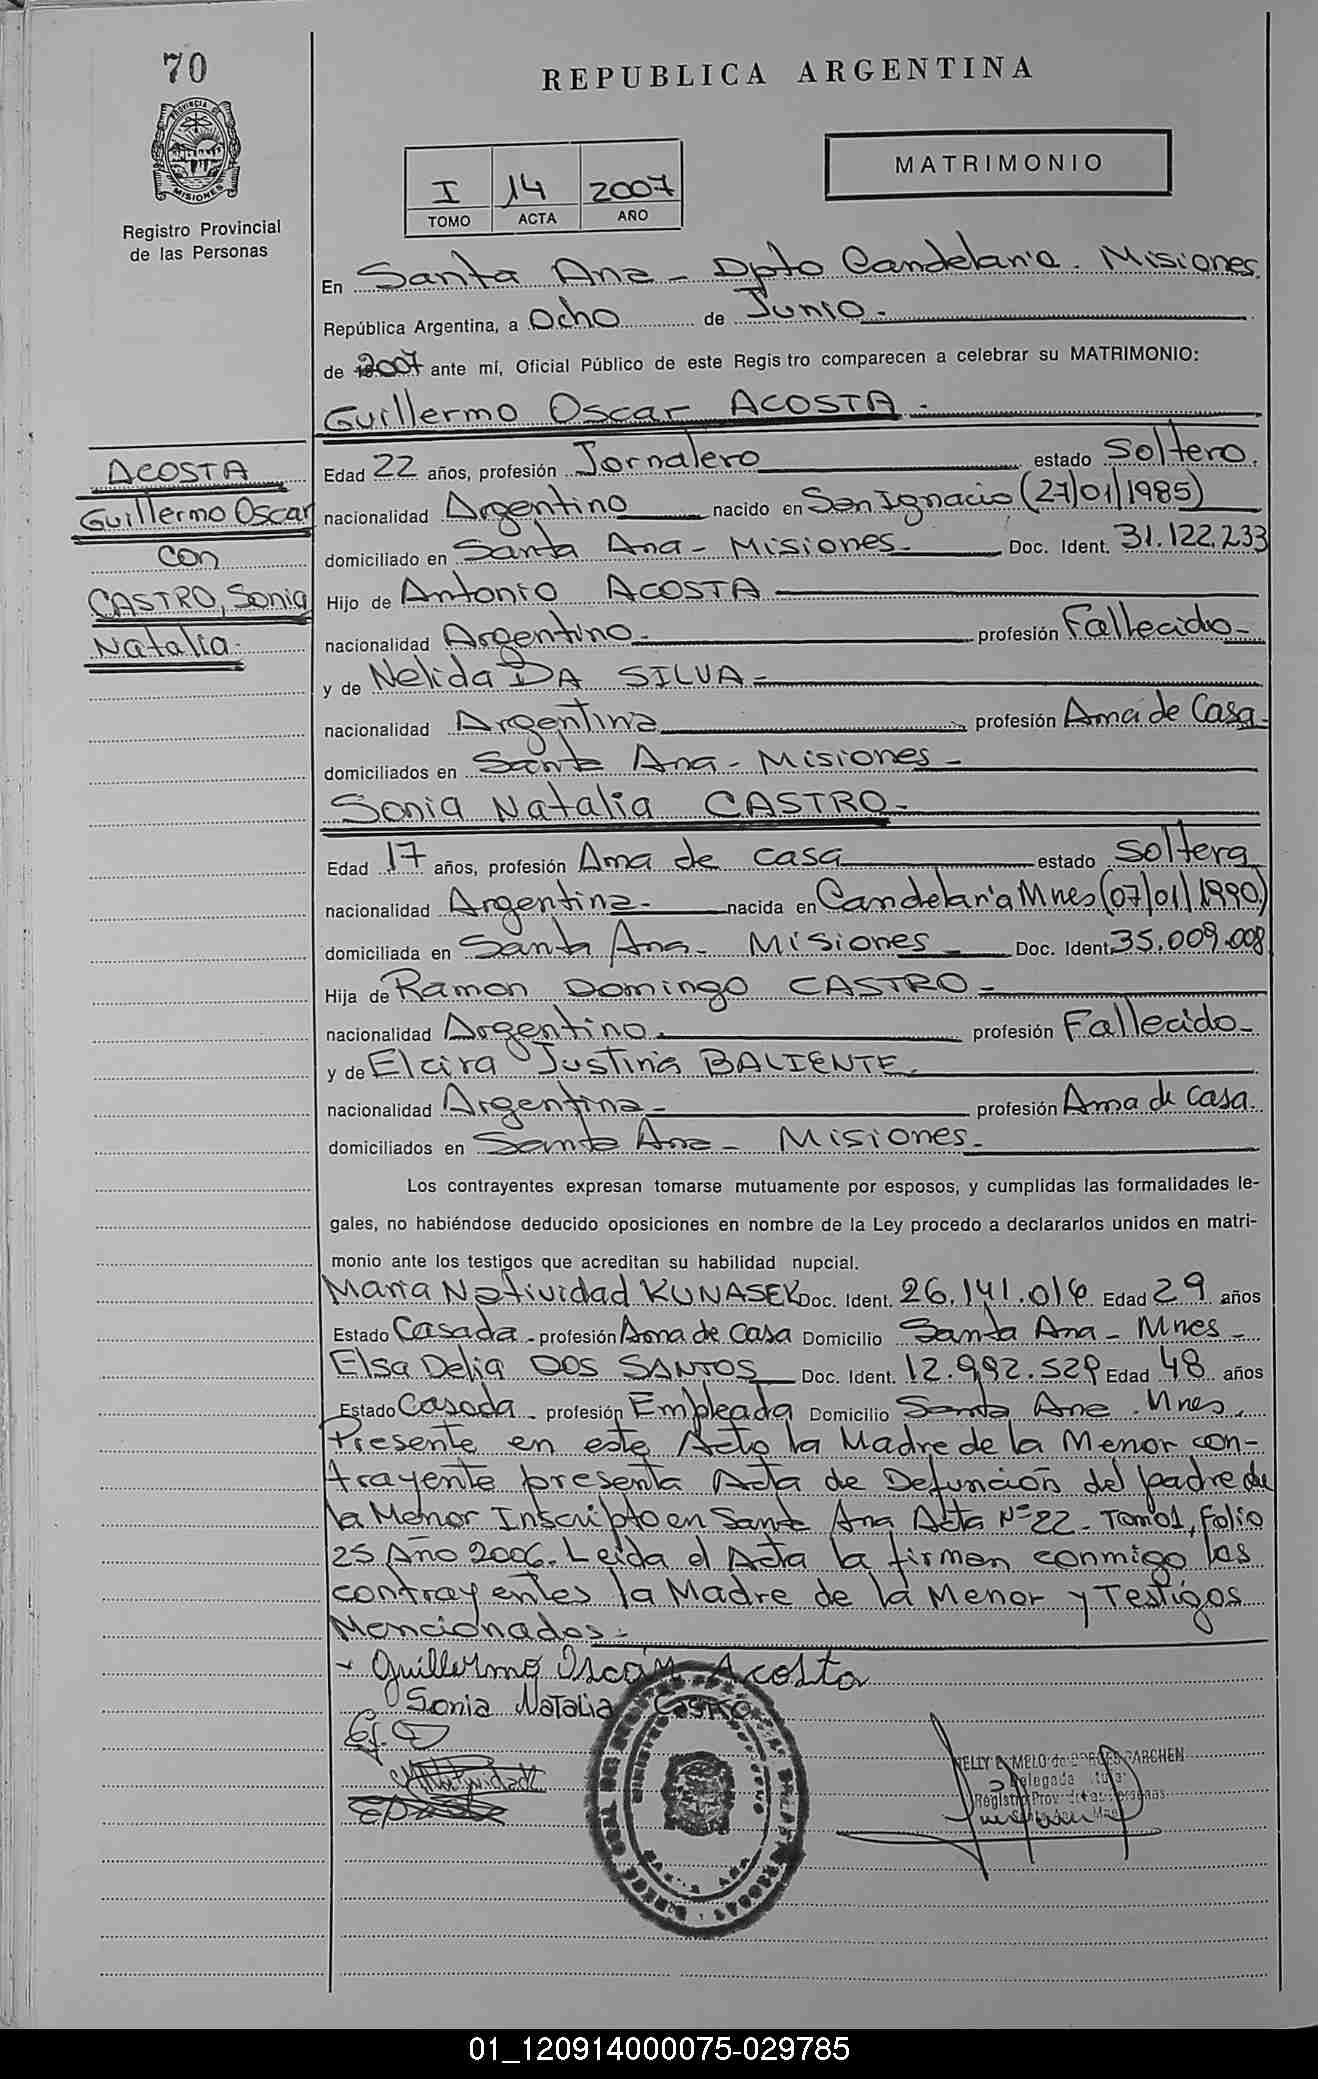 70
PROVINCIA DE MISIONES
Registro Provincial
de las Personas
REPUBLICA ARGENTINA
I 14 2007
TOMO ACTA AÑO
MATRIMONIO
En Santa Ana - Dpto Candelaria. Misiones.
República Argentina, a Ocho de Junio.-
de 2007 ante mí, Oficial Público de este Registro comparecen a celebrar su MATRIMONIO:
Guillermo Oscar ACOSTA.-
ACOSTA
Guillermo Oscar
con
CASTRO, Sonia
Natalia.-
Edad 22 años, profesión Jornalero estado Soltero.
nacionalidad Argentino nacido en San Ignacio (27/01/1985)
domiciliado en Santa Ana - Misiones.- Doc. Ident. 31.122.233
Hijo de Antonio ACOSTA
nacionalidad Argentino.- profesión Fallecido-
y de Nelida DA SILVA-
nacionalidad Argentina profesión Ama de Casa-
domiciliados en Santa Ana - Misiones-
Sonia Natalia CASTRO.-
Edad 17 años, profesión Ama de casa estado Soltera
nacionalidad Argentina.- nacida en Candelaria Mnes (07/01/1990)
domiciliada en Santa Ana- Misiones- Doc. Ident. 35.009.008
Hija de Ramon Domingo CASTRO-
nacionalidad Argentino. profesión Fallecido-
y de Elcira Justina BALIENTE.
nacionalidad Argentina- profesión Ama de casa.
domiciliados en Santa Ana- Misiones.-
Los contrayentes expresan tomarse mutuamente por esposos, y cumplidas las formalidades le-
gales, no habiéndose deducido oposiciones en nombre de la Ley procedo a declararlos unidos en matri-
monio ante los testigos que acreditan su habilidad nupcial.
Maria Natividad KUNASEK Doc. Ident. 26.141.016 Edad 29 años
Estado Casada- profesión Ama de Casa Domicilio Santa Ana- Mnes-
Elsa Delia DOS SANTOS Doc. Ident. 12.992.529 Edad 48 años
Estado Casada- profesión Empleada Domicilio Santa Ana. Mnes.
Presente en este Acto la Madre de la Menor con-
trayente presenta Acta de Defunción del padre de
la Menor Inscripto en Santa Ana Acta Nº 22- Tomo 1, Folio
25 Año 2006. Leida el Acta la firman conmigo los
contrayentes la Madre de la Menor y Testigos
Mencionados.-
Guillermo Oscar Acosta
Sonia Natalia Castro
NELLY B. MELO de BORGES PARCHEN
Delegada Titular
Registro Prov. de las Personas
Santa Ana Mnes
01_120914000075-029785